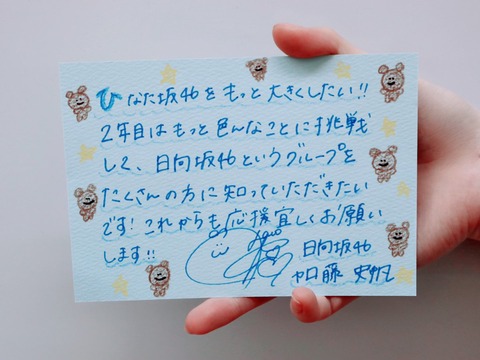 ひなた坂46をもっと大きくしたい!!
2年目はもっと色んなことに挑戦
して、日向坂46というグループを
たくさんの方に知っていただきたい
です!これからも応援宜しくお願い
します!! 日向坂46
加藤 史帆